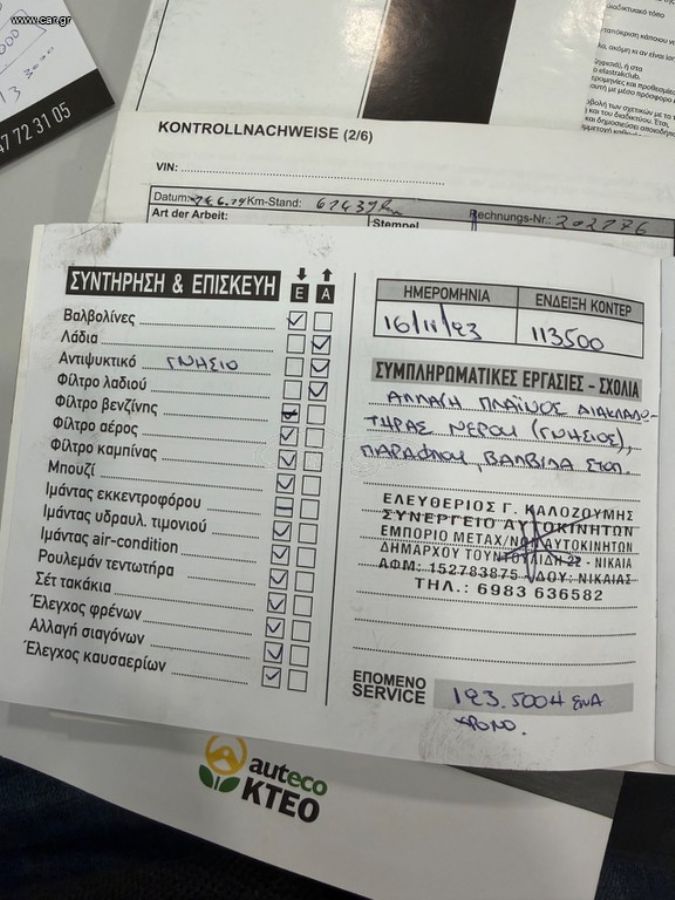 www.car.gr
000
3000
47 72 31 05
λαδικτυακό τόπο
KONTROLLNACHWEISE (2/6)
VIN:
Datum: Km-Stand: Rechnungs-Nr.: 202776
Art der Arbeit: Stempel
ΣΥΝΤΗΡΗΣΗ & ΕΠΙΣΚΕΥΗ Ε Α
Βαλβολίνες
Λάδια
Αντιψυκτικό ΓΝΗΣΙΟ
Φίλτρο λαδιού
Φίλτρο βενζίνης
Φίλτρο αέρος
Φίλτρο καμπίνας
Μπουζί
Ιμάντας εκκεντροφόρου
Ιμάντας υδραυλ. τιμονιού
Ιμάντας air-condition
Ρουλεμάν τεντωτήρα
Σέτ τακάκια
Έλεγχος φρένων
Αλλαγή σιαγόνων
Έλεγχος καυσαερίων
ΗΜΕΡΟΜΗΝΙΑ ΕΝΔΕΙΞΗ ΚΟΝΤΕΡ
113500
ΣΥΜΠΛΗΡΩΜΑΤΙΚΕΣ ΕΡΓΑΣΙΕΣ – ΣΧΟΛΙΑ
ΑΛΛΑΓΗ ΠΛΑΪΝΟΣ ΔΙΑΚΛΑΔΩ-
ΤΗΡΑΣ ΝΕΡΟΥ (ΓΝΗΣΙΟΣ),
ΒΑΛΒΙΔΑ ΣΤΟΠ.
ΕΛΕΥΘΕΡΙΟΣ Γ. ΚΑΛΟΖΟΥΜΗΣ
ΣΥΝΕΡΓΕΙΟ ΑΥΤΟΚΙΝΗΤΩΝ
ΕΜΠΟΡΙΟ ΜΕΤΑΧ/ΝΩΝ ΑΥΤΟΚΙΝΗΤΩΝ
ΔΗΜΑΡΧΟΥ ΤΟΥΝΤΟΥΛΙΔΗ 22 - ΝΙΚΑΙΑ
ΑΦΜ: 152783875 - ΔΟΥ: ΝΙΚΑΙΑΣ
ΤΗΛ.: 6983 636582
ΕΠΟΜΕΝΟ
SERVICE
123.500 Η ΕΝΑ
ΧΡΟΝΟ.
auteco
ΚΤΕΟ